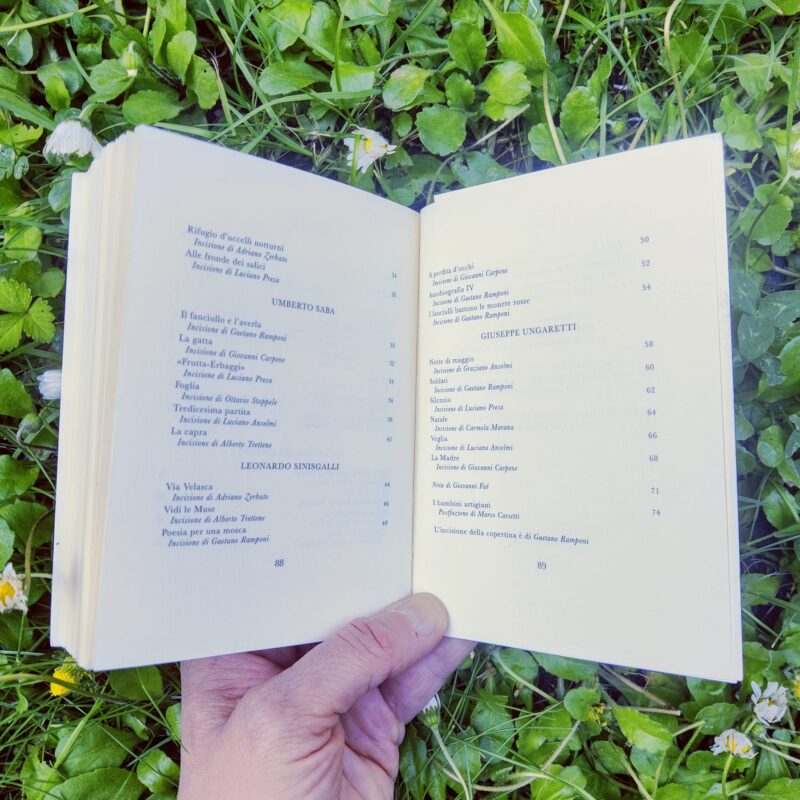 Rifugio d'uccelli notturni
Incisione di Adriano Zerbato
Alle fronde dei salici 24
Incisione di Luciano Presa 26
UMBERTO SABA
Il fanciullo e l'averla
Incisione di Gaetano Ramponi
La gatta
Incisione di Giovanni Carpene 32
«Frutta-Erbaggi»
Incisione di Luciano Presa 34
Foglia
Incisione di Ottavio Stoppele 36
Tredicesima partita
Incisione di Luciano Anselmi 38
La capra
Incisione di Alberto Trettene 40
LEONARDO SINISGALLI
Via Velasca 44
Incisione di Adriano Zerbato
Vidi le Muse 46
Incisione di Alberto Trettene
Poesia per una mosca 48
Incisione di Gaetano Ramponi
88
50
A perdita d'occhi
Incisione di Giovanni Carpene 52
Autobiografia IV
Incisione di Gaetano Ramponi 54
I fanciulli battono le monete rosse
Incisione di Gaetano Ramponi
GIUSEPPE UNGARETTI
Notte di maggio 58
Incisione di Graziano Anselmi
Soldati 60
Incisione di Gaetano Ramponi
Silenzio 62
Incisione di Luciano Presa
Natale 64
Incisione di Carmela Marana
Veglia 66
Incisione di Luciano Anselmi
La Madre 68
Incisione di Giovanni Carpene
Nota di Giovanni Foè 71
I bambini artigiani
Postfazione di Marco Carsetti 74
L'incisione della copertina è di Gaetano Ramponi
89